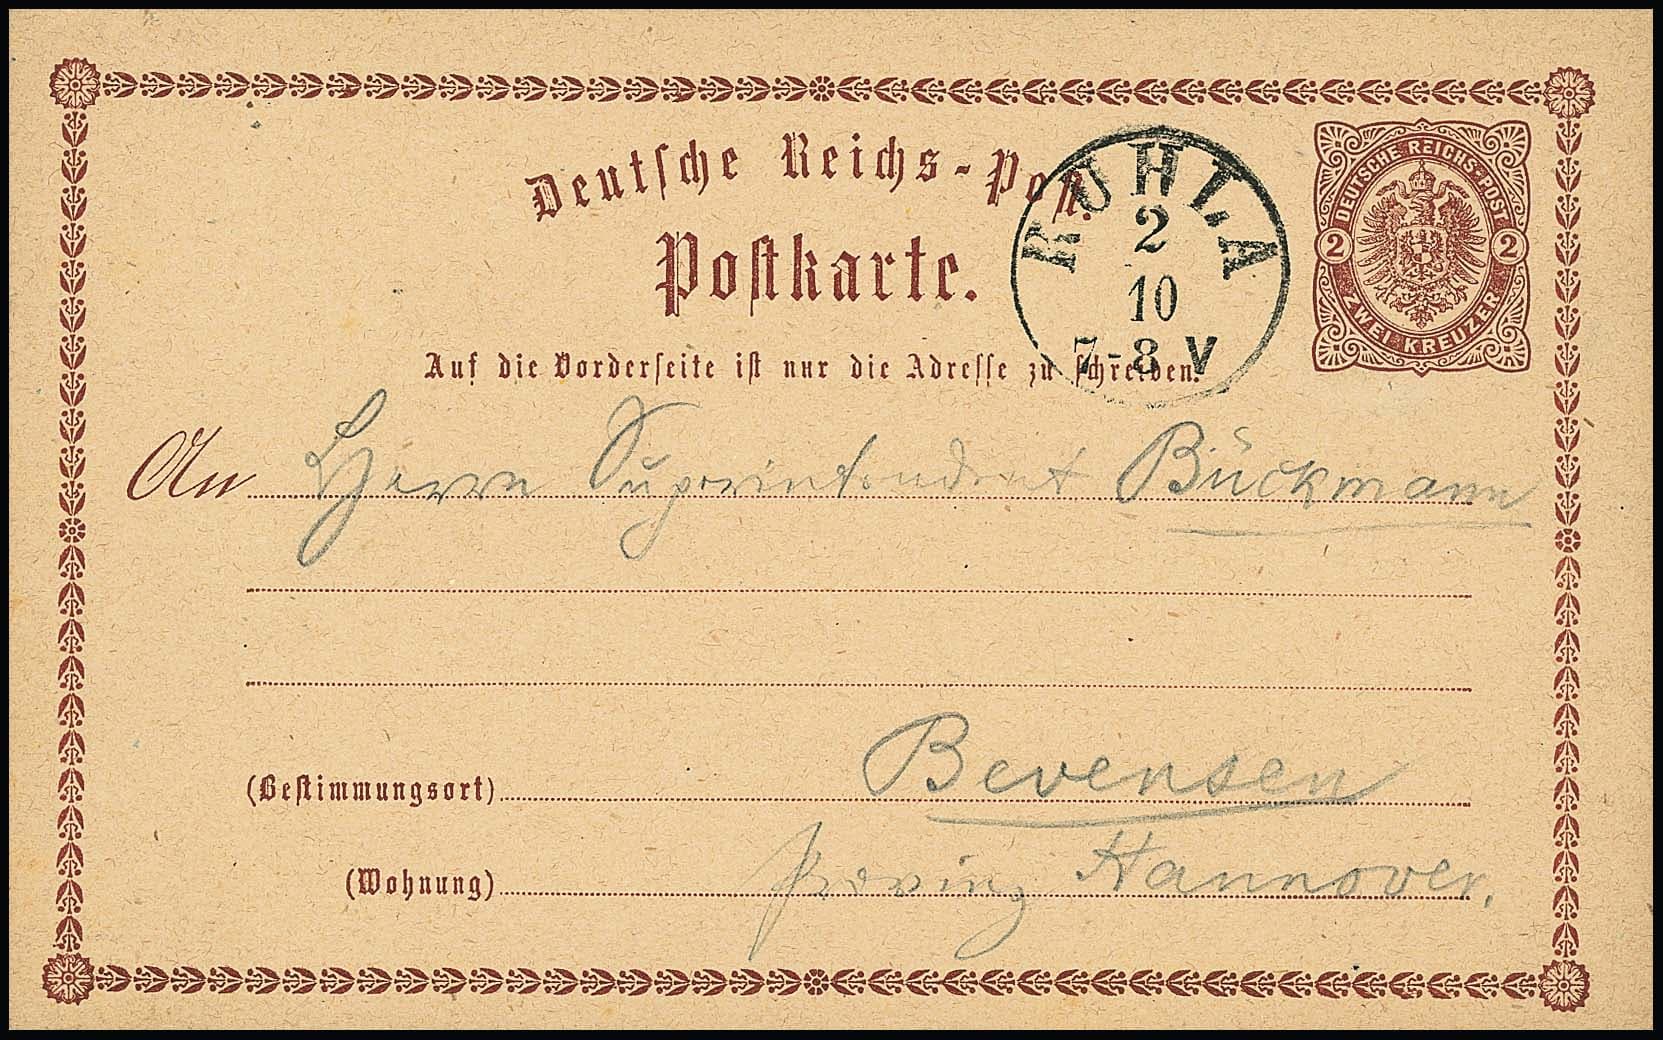 Deutsche Reichs-Post.
Postkarte.
RUHLA
2
10
7-8 V
DEUTSCHE REICHS-POST
2 2
ZWEI KREUZER
Auf die Vorderseite ist nur die Adresse zu schreiben.
An Herrn Superintendent Bückmann
(Bestimmungsort) Bevensen
(Wohnung) Provinz Hannover.